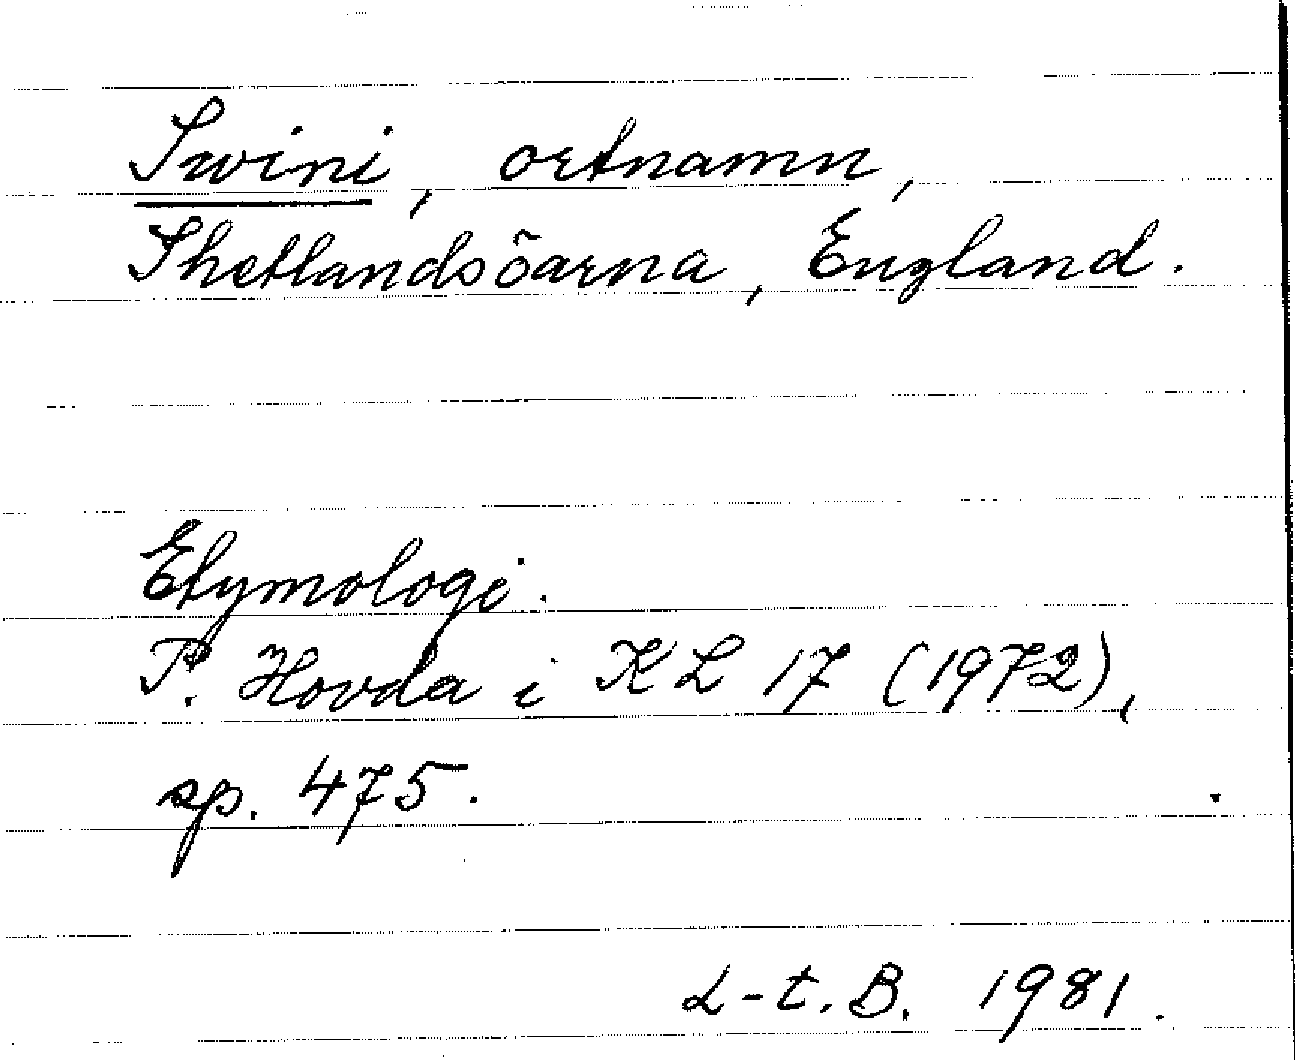 Swini, ortnamn,
Shetlandsöarna, England.
Etymologi.
P. Hovda i KL 17 (1972),
sp. 475.
L-t. B. 1981.